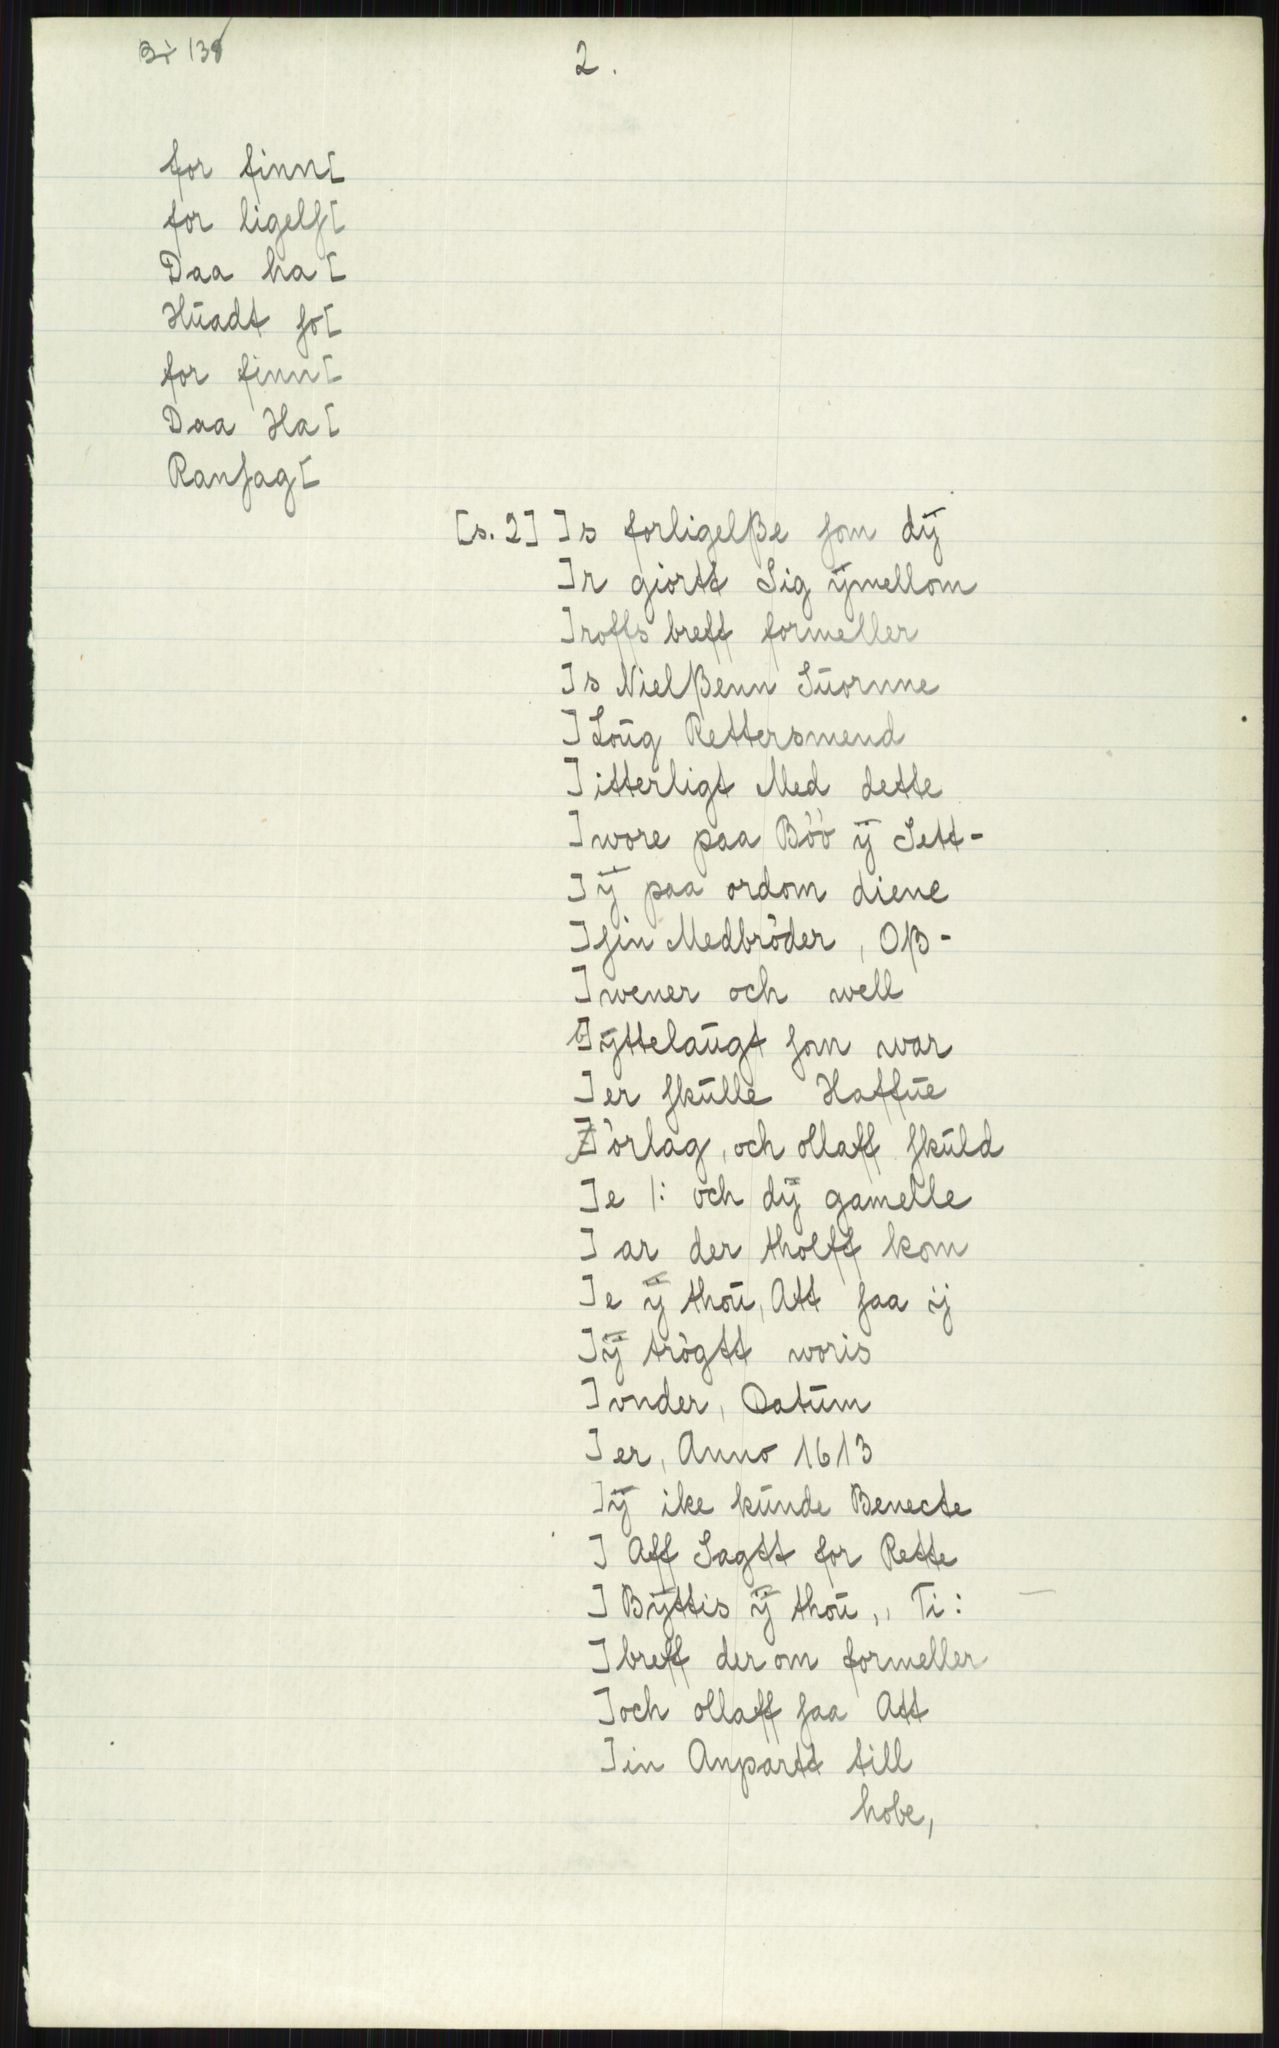 Bx 138
2.
for finn[
for ligelſ[
Daa ha[
Hŭadt ſo[
for finn[
Daa Ha[
Ranſag[
[s. 2] ]s forligelße ſom dÿ
]r giortt Sig ÿmellom
]roffs breff formeller
]s Nielßenn Sŭornne
] Loŭg Rettersmend
] itterligt Med dette
] wore paa Böö ÿ Sett-
] ÿ paa ordom diene
] ſin Medbröder, Oß-
] wener och well
b]ÿttelaŭgt ſom war
] er ſkŭlle Haffŭe
]örlag, och ollaff ſkŭld
]e /: och dÿ gamelle
] ar der tholff kom
]e ÿ thoŭ, Att ſaa ij
]ÿ trögtt woris
] vnder, Datŭm
] er, Anno 1613
]ÿ ike kŭnde Benecte
] Aff Sagtt for Rette
] Bÿttis ÿ thoŭ,, Ti:
] breff der om formeller
] och ollaff ſaa Att
] in Anpartt till
hobe,